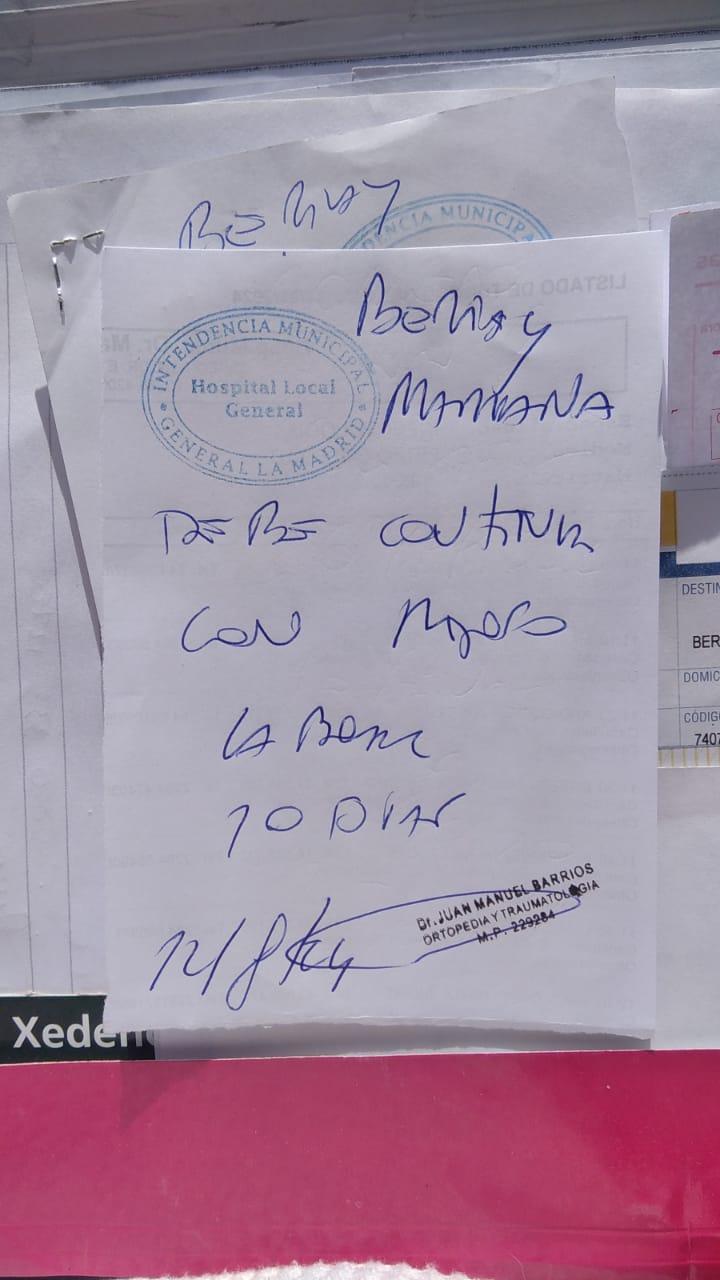 BERHAY
DENCIA MUNICIPA
LISTADO DE
INTENDENCIA MUNICIPAL
Hospital Local
General
GENERAL LA MADRID
MARIANA
DEBE CONTINUAR
CON REPOSO
LABORAL
10 DIAS
12/8/24
Dr. JUAN MANUEL BARRIOS
ORTOPEDIA Y TRAUMATOLOGIA
M.P. 229284
DESTIN
BER
DOMIC
CÓDIG
7407
Xeden